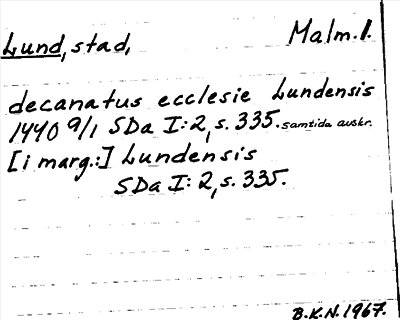 Lund, stad, Malm. l.
decanatus ecclesie Lundensis
1440 9/1 SDa I: 2, s. 335. samtida avskr.
[i marg.:] Lundensis
SDa I: 2, s. 335.
B.K.N. 1967.